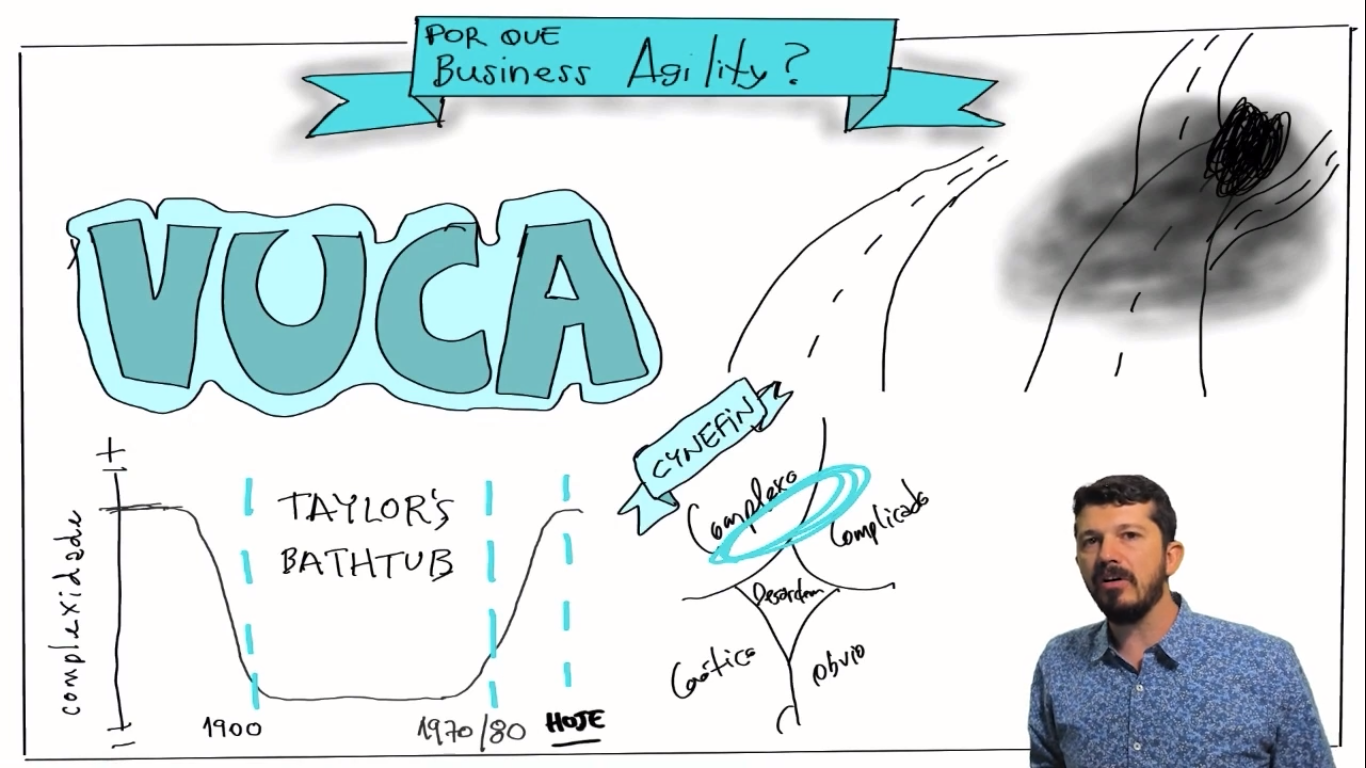 POR QUE
Business Agility?
VUCA
CYNEFIN
+
complexidade
TAYLOR'S
BATHTUB
1900
1970/80
HOJE
Complexo
Complicado
Desordem
Caótico
Obvio